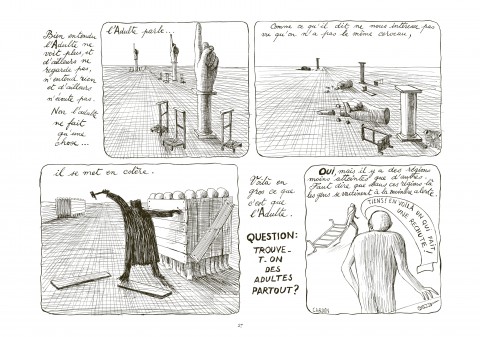 Bien entendu
l'Adulte ne
voit plus, et
d'ailleurs ne
regarde pas,
n'entend rien
et d'ailleurs
n'écoute pas.
Non l'adulte
ne fait
qu'une
chose...
l'Adulte parle...
Comme ce qu'il dit ne nous intéresse pas
vu qu'on n'a pas le même cerveau,
il se met en colère.
Voilà en
gros ce que
c'est que
l'Adulte.
QUESTION:
TROUVE-
T-ON
DES
ADULTES
PARTOUT?
OUI, mais il y a des régions
moins atteintes que d'autres.
Faut dire que dans ces régions-là
les gens se vaccinent à la moindre alerte
TIENS! EN VOILÀ UN QUI FAIT
UNE RECHUTE!
27